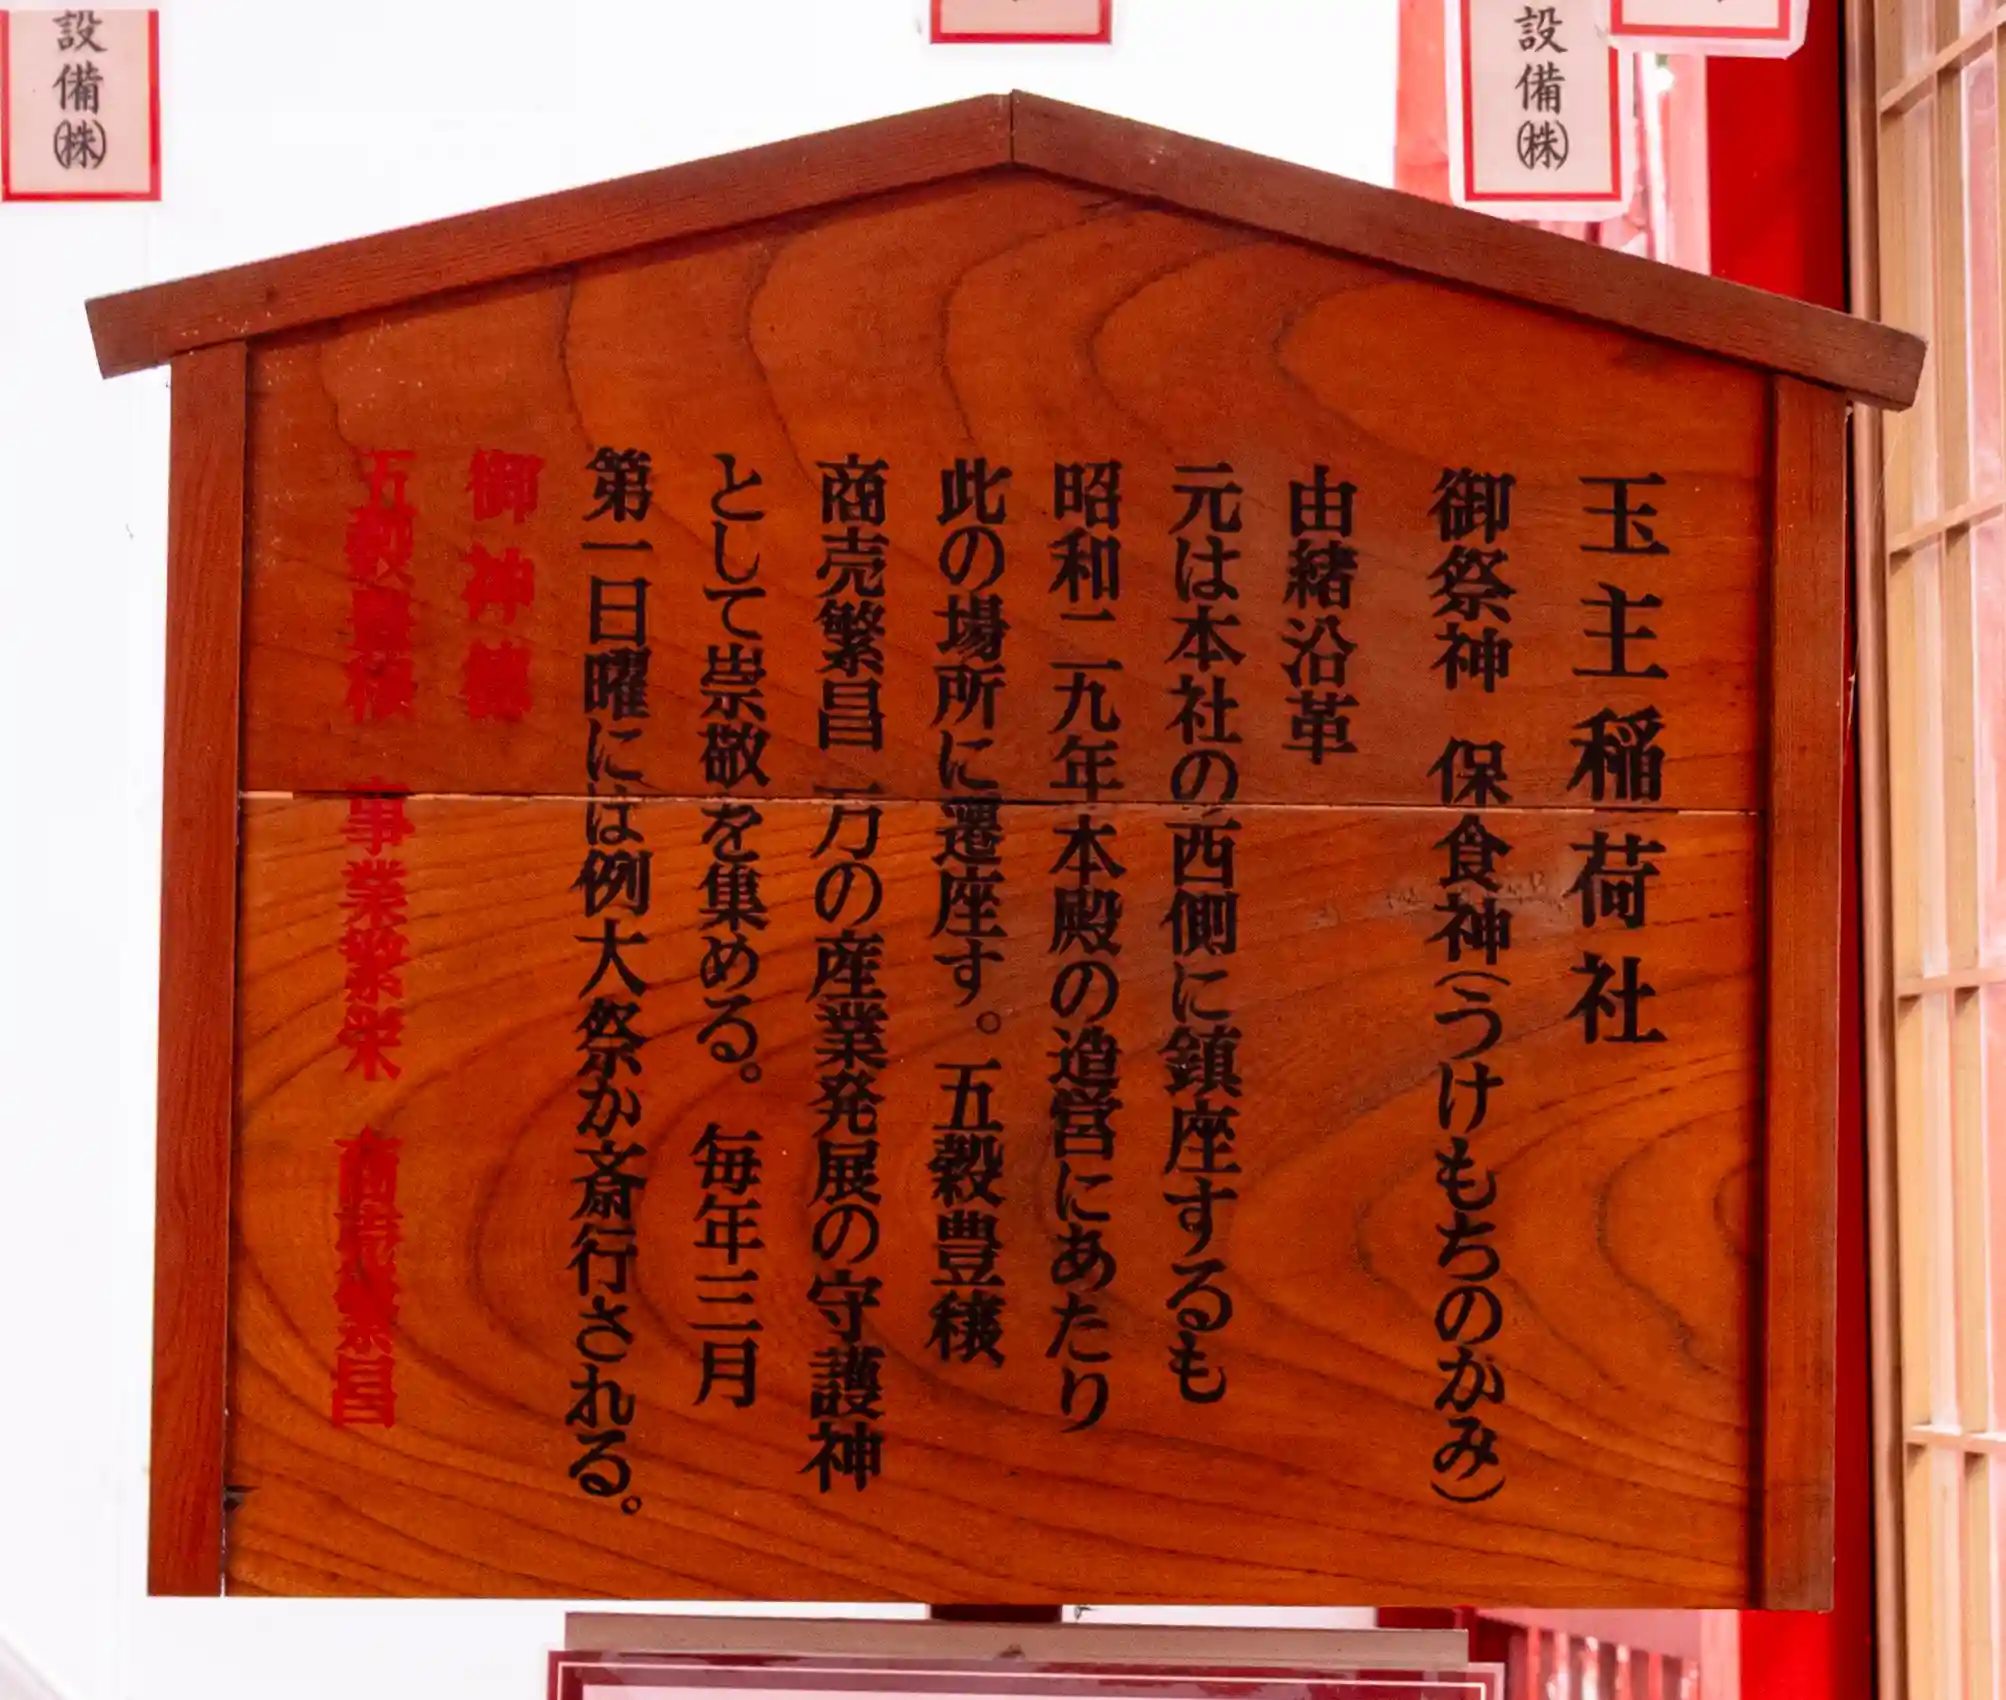 玉主稲荷社
御祭神 保食神(うけもちのかみ)
由緒沿革
元は本社の西側に鎮座するも
昭和二九年本殿の造営にあたり
此の場所に遷座す。五穀豊穣
商売繁昌 万の産業発展の守護神
として崇敬を集める。毎年三月
第一日曜には例大祭が斎行される。
御神徳
五穀豊穣 事業繁栄 商売繁昌
設備㈱
設備㈱